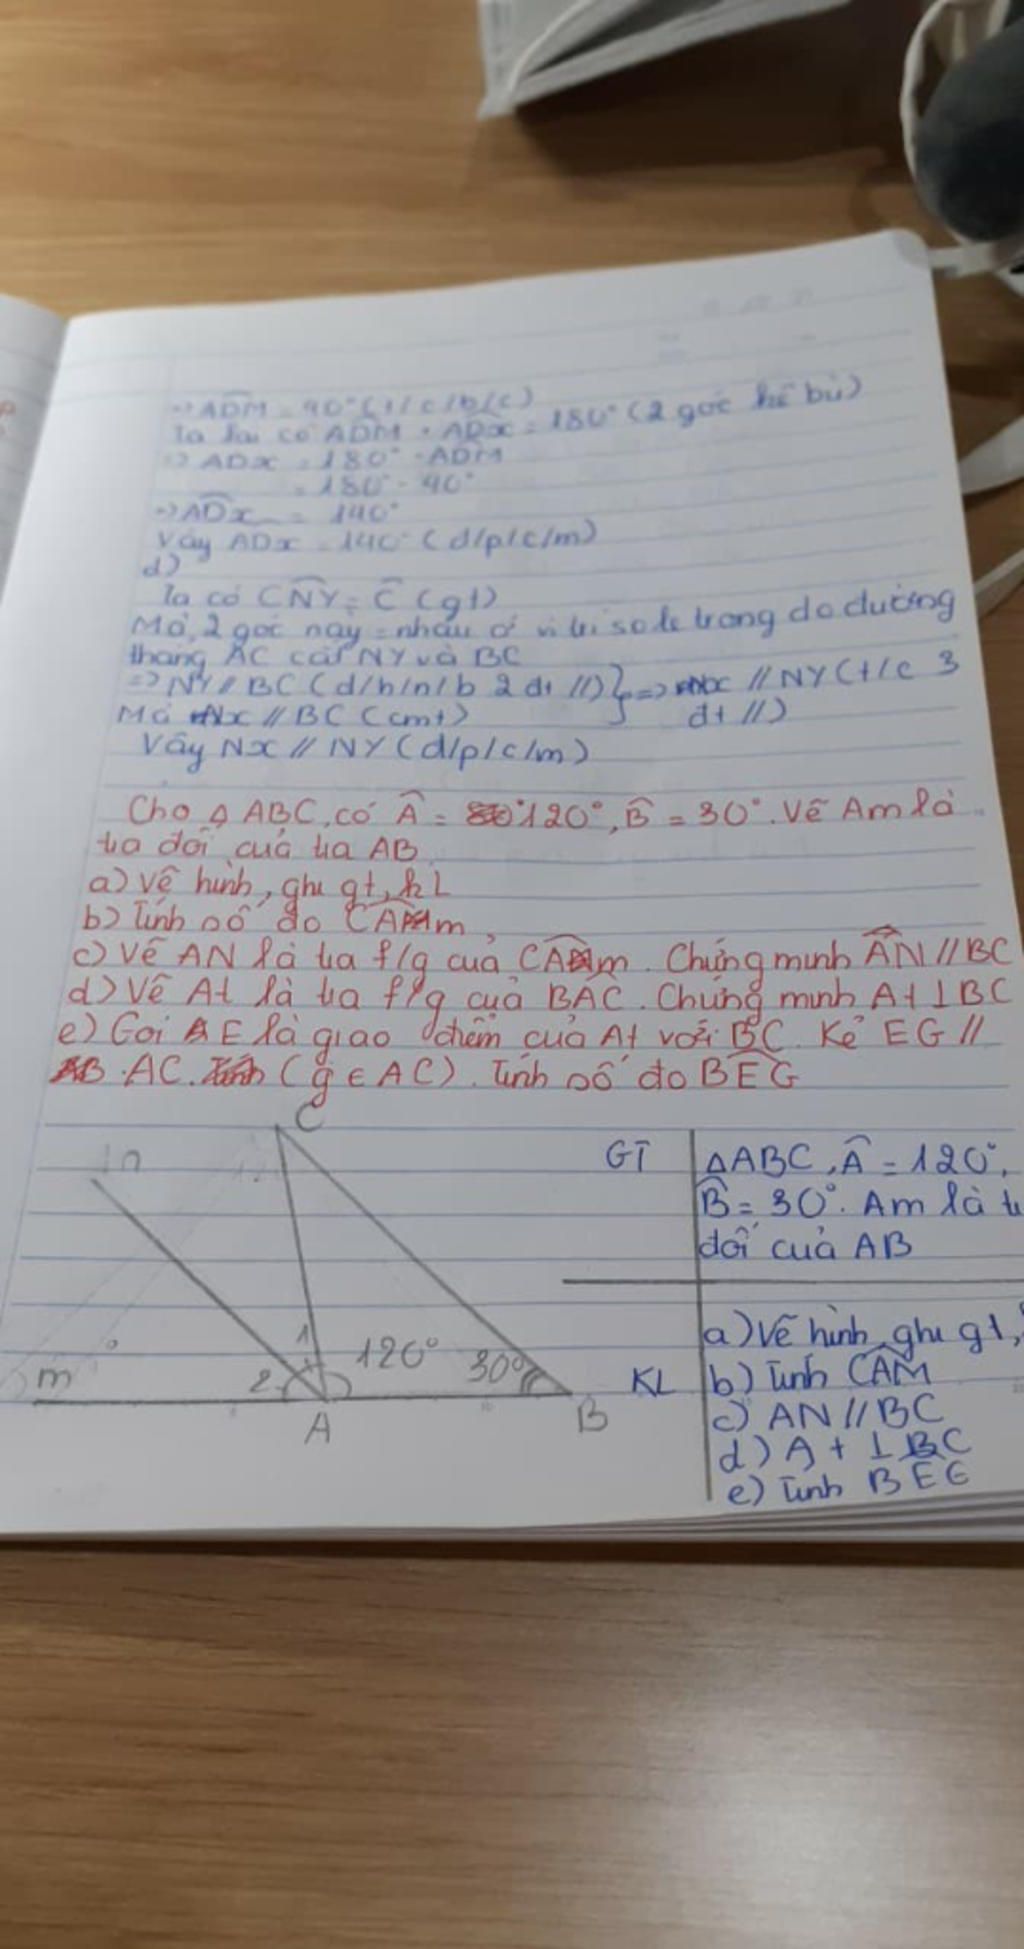 => ADM = 40° (t/c/b/c)
Ta lại có ADM + ADx = 180° (2 góc kề bù)
=> ADx = 180° - ADM
= 180° - 40°
=> ADx = 140°
Vậy ADx = 140° (đ/p/c/m)
d)
Ta có CNY = C (gt)
Mà 2 góc này = nhau ở vị trí so le trong do đường
thẳng AC cắt NY và BC
=> NY // BC (d/h/n/b 2 đt //) } => Nx // NY (t/c 3
Mà Nx // BC (cmt) đt //)
Vậy Nx // NY (đ/p/c/m)
Cho △ ABC, có A = 120°, B = 30°. Vẽ Am là
tia đối của tia AB
a) Vẽ hình, ghi gt, kL
b) Tính số đo CAm
c) Vẽ AN là tia f/g của CAm. Chứng minh AN // BC
d) Vẽ At là tia f/g của BAC. Chứng minh At ⊥ BC
e) Gọi E là giao điểm của At với BC. Kẻ EG //
AC. (g ∈ AC). Tính số đo BEG
C
n
m
2
1
120°
30°
A
B
GT
△ABC, A = 120°,
B = 30°. Am là t
đối của AB
KL
a) Vẽ hình, ghi gt,
b) Tính CAM
c) AN // BC
d) At ⊥ BC
e) Tính BEG